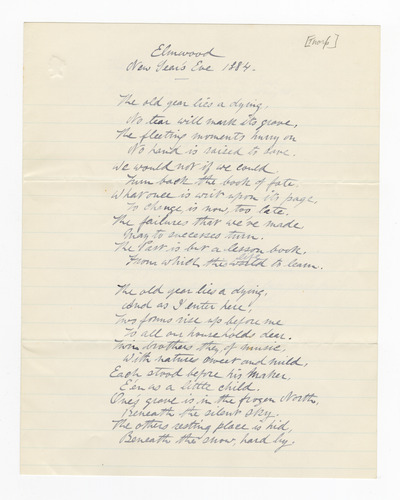 Elmwood
[Knorp]
New Year's Eve 1884.
The old year lies a dying,
No tear will mark its grave,
The fleeting moments hurry on
No hand is raised to save.
We would not if we could
Turn back the book of fate,
What once is writ upon its page,
To change is now, too late.
The failures that we've made
May to successes turn.
The Past is but a lesson book,
From which the world to learn.
The old year lies a dying,
And as I enter here,
Two forms rise up before me
To all our household dear.
Twin brothers they of music
With natures sweet and mild,
Each stood before his Maker,
E'en as a little child.
One's grave is in the frozen North,
Beneath the silent sky.
The others resting place is hid,
Beneath the snow, hard by.